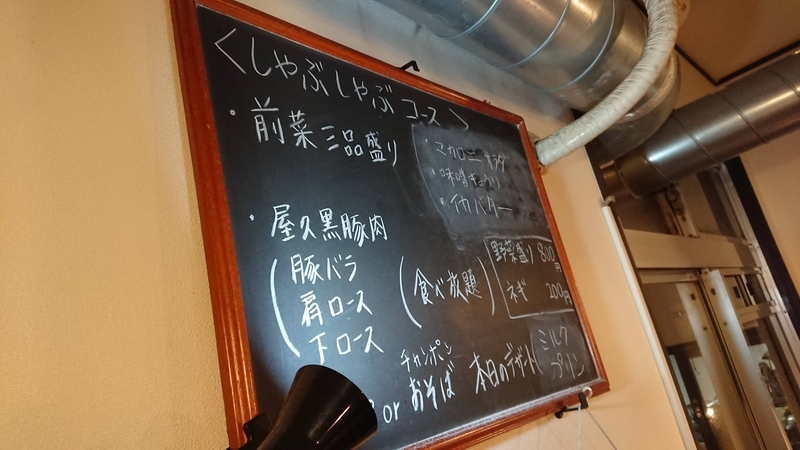 <しゃぶしゃぶコース>
・前菜三品盛り
・マカロニサラダ
・味噌きゅうり
・イカバター
・屋久黒豚肉
(豚バラ
肩ロース
下ロース
(食べ放題)
野菜盛り 800円
ネギ 200円
チャンポン
or おそば 本日のデザート
ミルク
プリン